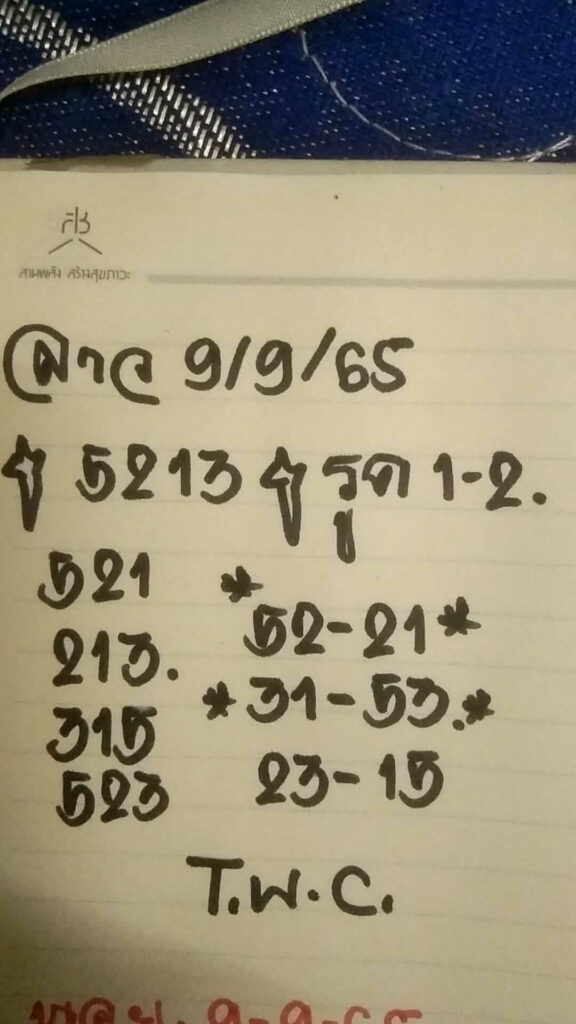 สช
สานพลัง สร้างสุขภาวะ
ลาว 9/9/65
5213 รูด 1-2.
521
213.
315
523
*52-21*
*31-53.*
23-15
T.W.C.
9-9-65